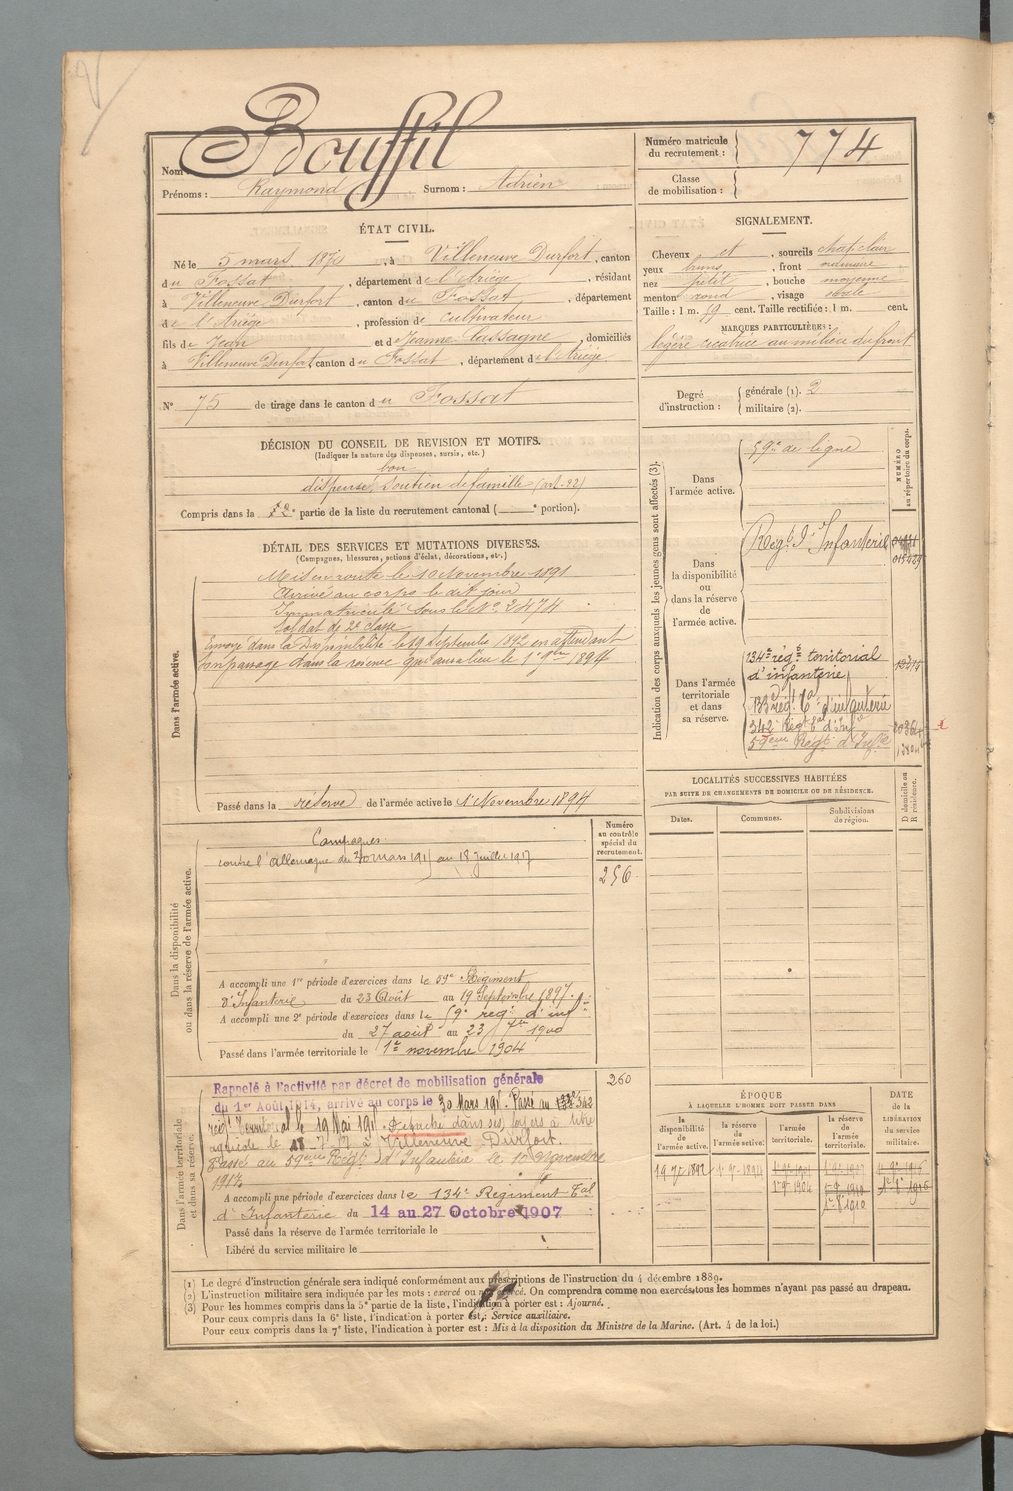 Nom : Bouffil
Prénoms : Raymond Surnom : Adrien
Numéro matricule du recrutement : 774
Classe de mobilisation :
ÉTAT CIVIL.
Né le 5 mars 1870, à Villeneuve Durfort, canton
du Fossat, département de l'Ariège, résidant
à Villeneuve Durfort, canton du Fossat, département
de l'Ariège, profession de cultivateur
fils de Jean et de Jeanne Cassagne, domiciliés
à Villeneuve Durfort, canton du Fossat, département de l'Ariège.
N° 75 de tirage dans le canton du Fossat
SIGNALEMENT.
Cheveux et, sourcils chat. clair
yeux bruns, front ordinaire
nez petit, bouche moyenne
menton rond, visage ovale
Taille : 1 m. 59 cent. Taille rectifiée : 1 m. cent.
MARQUES PARTICULIÈRES :
légère cicatrice au milieu du front
Degré d'instruction : générale (1). 2
militaire (2).
DÉCISION DU CONSEIL DE REVISION ET MOTIFS.
(Indiquer la nature des dispenses, sursis, etc.)
bon
dispensé. Soutien de famille (art. 22)
Compris dans la partie de la liste du recrutement cantonal ( e portion).
DÉTAIL DES SERVICES ET MUTATIONS DIVERSES.
(Campagnes, blessures, actions d'éclat, décorations, etc.)
Dans l'armée active.
Mis en route le 10 Novembre 1891
Arrivé au corps le dit jour
Immatriculé sous le N° 2474
Soldat de 2e classe
Envoyé dans la Disponibilité le 19 Septembre 1892 en attendant
son passage dans la réserve qui aura lieu le 1er 9bre 1894
Passé dans la réserve de l'armée active le 1er Novembre 1894
Indication des corps auxquels les jeunes gens sont affectés (3).
NUMÉRO au répertoire du corps.
Dans l'armée active.
59e de ligne
Dans la disponibilité ou dans la réserve de l'armée active.
Régt d'Infanterie
Dans l'armée territoriale et dans sa réserve.
134e régt territorial
d'infanterie
133e régt Tal d'infanterie
342 Régt Tal d'Infie
59ème Régt d'Infie
LOCALITÉS SUCCESSIVES HABITÉES
PAR SUITE DE CHANGEMENTS DE DOMICILE OU DE RÉSIDENCE.
Dates. Communes. Subdivisions de région. D domicile ou R résidence.
Dans la disponibilité ou dans la réserve de l'armée active.
Numéro au contrôle spécial du recrutement.
256
Campagnes
contre l'Allemagne du 30 mars 1915 au 18 juillet 1917
A accompli une 1re période d'exercices dans le 59e Régiment
d'Infanterie du 23 Août au 19 Septembre 1897.
A accompli une 2e période d'exercices dans le 59e régt d'infie
du 27 août au 23 7bre 1900
Passé dans l'armée territoriale le 1er novembre 1904
Dans l'armée territoriale et dans sa réserve.
260
Rappelé à l'activité par décret de mobilisation générale
du 1er Août 1914, arrivé au corps le 30 Mars 1915. Passé au 342
régt Territorial le 19 Mai 1915. Détaché dans ses foyers à titre
agricole le 18-7-17 à Villeneuve Durfort.
Passé au 59ème Régt d'Infanterie le 10 Novembre
1917.
A accompli une période d'exercices dans le 134e Régiment Tal
d'Infanterie du 14 au 27 Octobre 1907
Passé dans la réserve de l'armée territoriale le
Libéré du service militaire le
ÉPOQUE
À LAQUELLE L'HOMME DOIT PASSER DANS
la disponibilité de l'armée active. la réserve de l'armée active. l'armée territoriale. la réserve de l'armée territoriale.
DATE de la LIBÉRATION du service militaire.
19 7bre 1892 1er 9bre 1894
1er 9bre 1904
(1) Le degré d'instruction générale sera indiqué conformément aux prescriptions de l'instruction du 4 décembre 1889.
(2) L'instruction militaire sera indiquée par les mots : exercé ou non exercé. On comprendra comme non exercés tous les hommes n'ayant pas passé au drapeau.
(3) Pour les hommes compris dans la 5e partie de la liste, l'indication à porter est : Ajourné.
Pour ceux compris dans la 6e liste, l'indication à porter est : Service auxiliaire.
Pour ceux compris dans la 7e liste, l'indication à porter est : Mis à la disposition du Ministre de la Marine. (Art. 4 de la loi.)